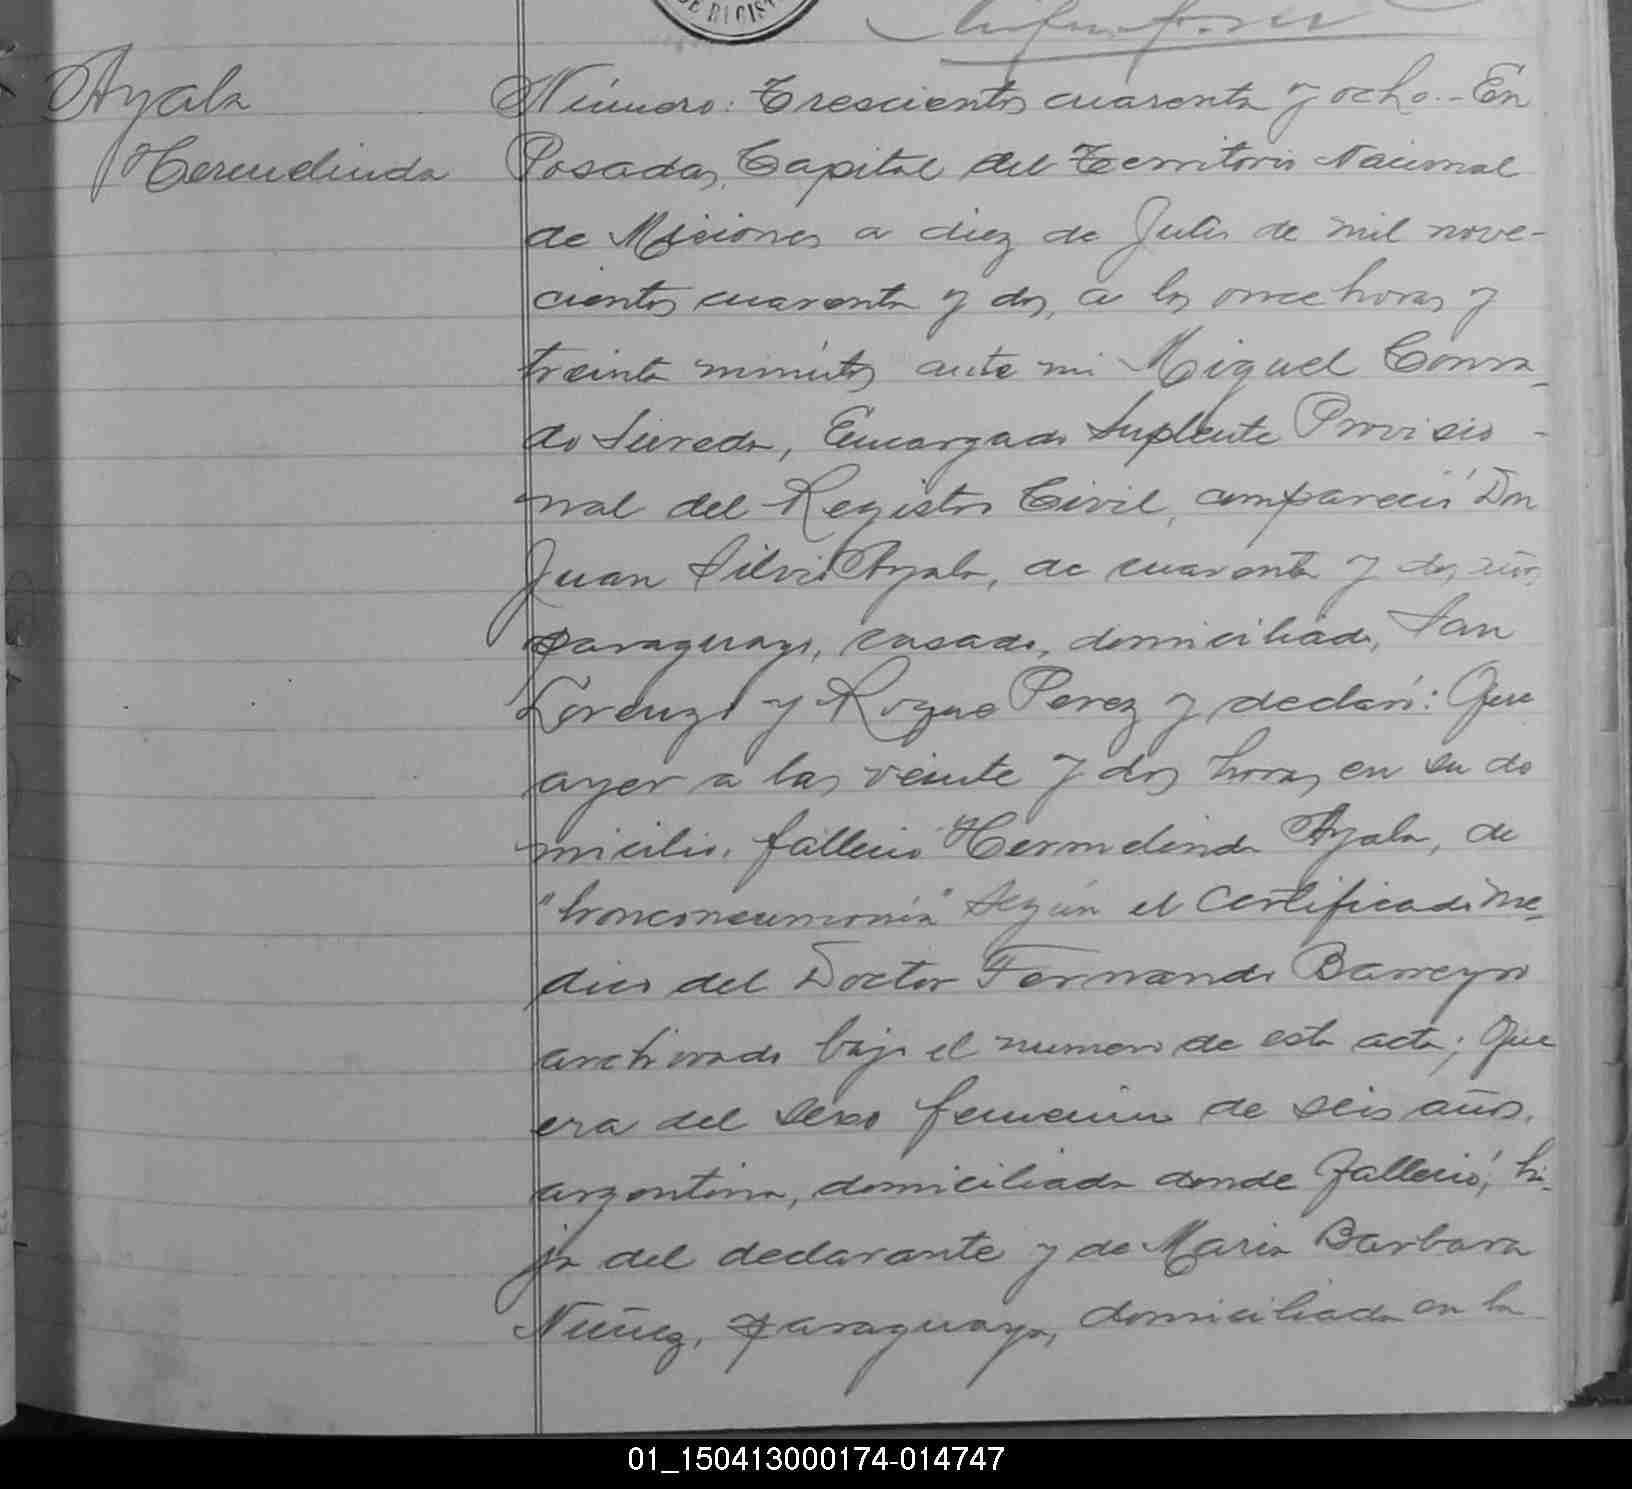 DE REGIST
Ayala
Hermelinda
Número: Trescientos cuarenta y ocho.- En
Posadas, Capital del Territorio Nacional
de Misiones a diez de Julio de mil nove-
cientos cuarenta y dos, a las once horas y
treinta minutos ante mi Miguel Conra-
do Encargado Suplente Provisio-
nal del Registro Civil, compareció Don
Juan Silvio Ayala, de cuarenta y dos años,
paraguayo, casado, domiciliado, San
Lorenzo y Roque Perez y declaró: Que
ayer a las veinte y dos horas, en su do
micilio, falleció Hermelinda Ayala, de
"bronconeumonía" según el Certificado Mé-
dico del Doctor Fernando Barreyro
archivado bajo el numero de esta acta; Que
era del sexo femenino de seis años,
argentina, domiciliada donde falleció; hi-
ja del declarante y de Maria Barbara
Nuñez, paraguaya, domiciliada en la
01_150413000174-014747